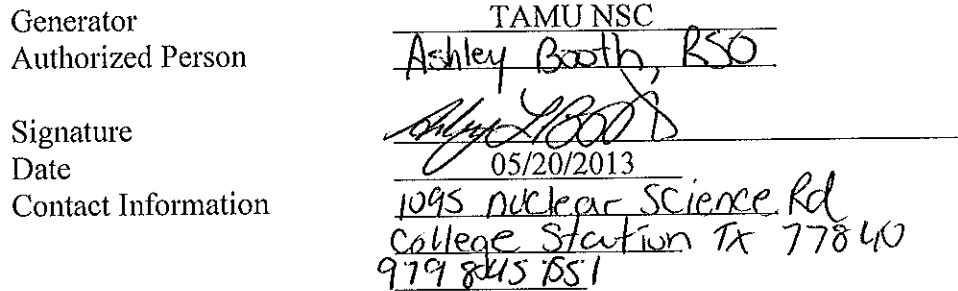 Generator TAMU NSC
Authorized Person Ashley Booth, RSO
Signature Ashley L Booth
Date 05/20/2013
Contact Information 1095 nuclear Science Rd
College Station TX 77840
979 845